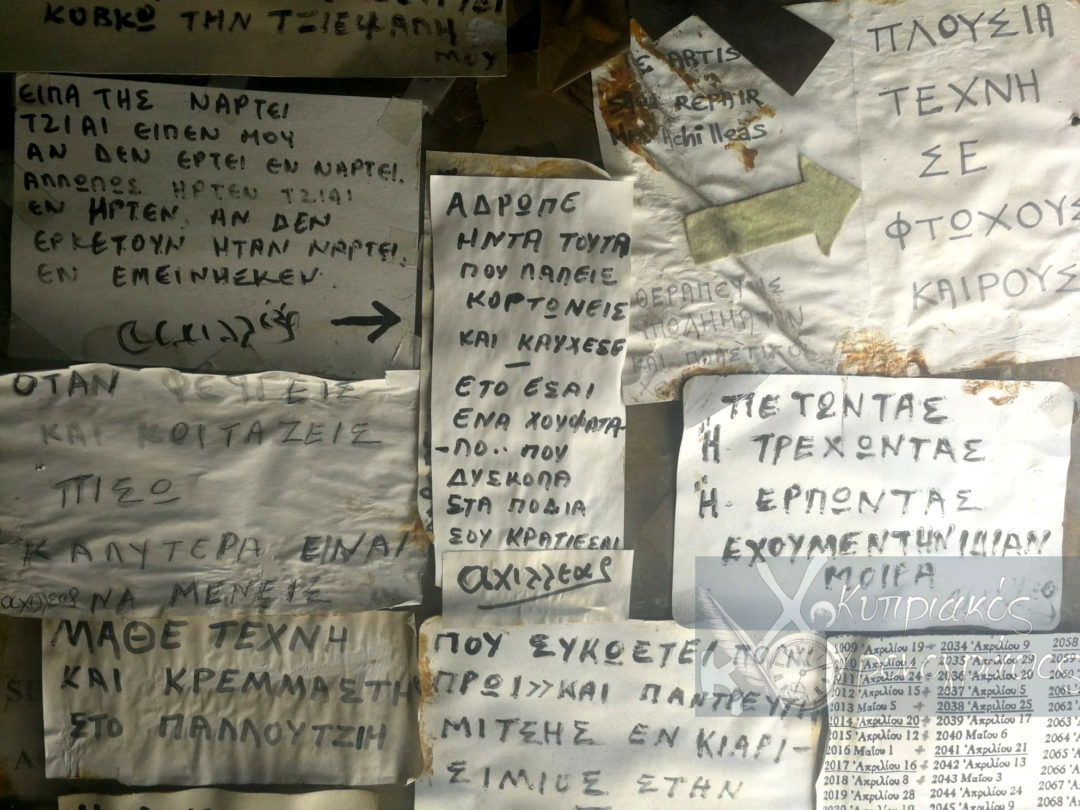 ΚΟΒΚΩ ΤΗΝ ΤΖΙΕΦΑΛΗ
ΜΟΥ
ΕΙΠΑ ΤΗΣ ΝΑΡΤΕΙ
ΤΖΙΑΙ ΕΙΠΕΝ ΜΟΥ
ΑΝ ΔΕΝ ΕΡΤΕΙ ΕΝ ΝΑΡΤΕΙ.
ΑΛΛΩΠΩΣ ΗΡΤΕΝ ΤΖΙΑΙ
ΕΝ ΗΡΤΕΝ. ΑΝ ΔΕΝ
ΕΡΚΕΤΟΥΝ ΗΤΑΝ ΝΑΡΤΕΙ.
ΕΝ ΕΜΕΙΝΗΣΚΕΝ
ΑΔΡΩΠΕ
ΗΝΤΑ ΤΟΥΤΑ
ΠΟΥ ΛΑΛΕΙΣ
ΚΟΡΤΩΝΕΙΣ
ΚΑΙ ΚΑΥΧΕΣΕ
ΕΤΟ ΕΣΑΙ
ΕΝΑ ΧΟΥΦΑΤΑ-
-ΛΟ.. ΠΟΥ
ΔΥΣΚΟΛΑ
ΣΤΑ ΠΟΔΙΑ
ΣΟΥ ΚΡΑΤΙΕΣΑΙ
αχιλλέας
ARTIS
REPAIR
Achilleas
ΠΛΟΥΣΙΑ
ΤΕΧΝΗ
ΣΕ
ΦΤΩΧΟΥΣ
ΚΑΙΡΟΥΣ
ΟΤΑΝ ΦΕΥΓΕΙΣ
ΚΑΙ ΚΟΙΤΑΖΕΙΣ
ΠΙΣΩ
ΚΑΛΥΤΕΡΑ ΕΙΝΑΙ
αχιλλέας ΝΑ ΜΕΝΕΙΣ
ΠΕΤΩΝΤΑΣ
Ή ΤΡΕΧΩΝΤΑΣ
Ή ΕΡΠΩΝΤΑΣ
ΕΧΟΥΜΕΝ ΤΗΝ ΙΔΙΑΝ
ΜΟΙΡΑ
Κυπριακός
ΜΑΘΕ ΤΕΧΝΗ
ΚΑΙ ΚΡΕΜΜΑΣΤΗ
ΣΤΟ ΠΑΛΛΟΥΤΖΙΗ
ΠΟΥ ΣΥΚΩΕΤΕΙ
ΠΡΩΙ>> ΚΑΙ ΠΑΝΤΡΕΥΤΗ
ΜΙΤΣΗΣ ΕΝ ΚΙΑΡΙ-
ΣΙΜΙΟΣ ΣΤΗΝ
2009 Ἀπριλίου 19 2034 Ἀπριλίου 9 2058
2010 Ἀπριλίου 4 2035 Ἀπριλίου 29 2059
2011 Ἀπριλίου 24 2036 Ἀπριλίου 20
2012 Ἀπριλίου 15 2037 Ἀπριλίου 5
2013 Μαίου 5 2038 Ἀπριλίου 25 2062
2014 Ἀπριλίου 20 2039 Ἀπριλίου 17 2063
2015 Ἀπριλίου 12 2040 Μαΐου 6 2064
2016 Μαίου 1 2041 Ἀπριλίου 21 2065
2017 Ἀπριλίου 16 2042 Ἀπριλίου 13 2066
2018 Ἀπριλίου 8 2043 Μαΐου 3 2067
2019 Ἀπριλίου 28 2044 Ἀπριλίου 24 2068